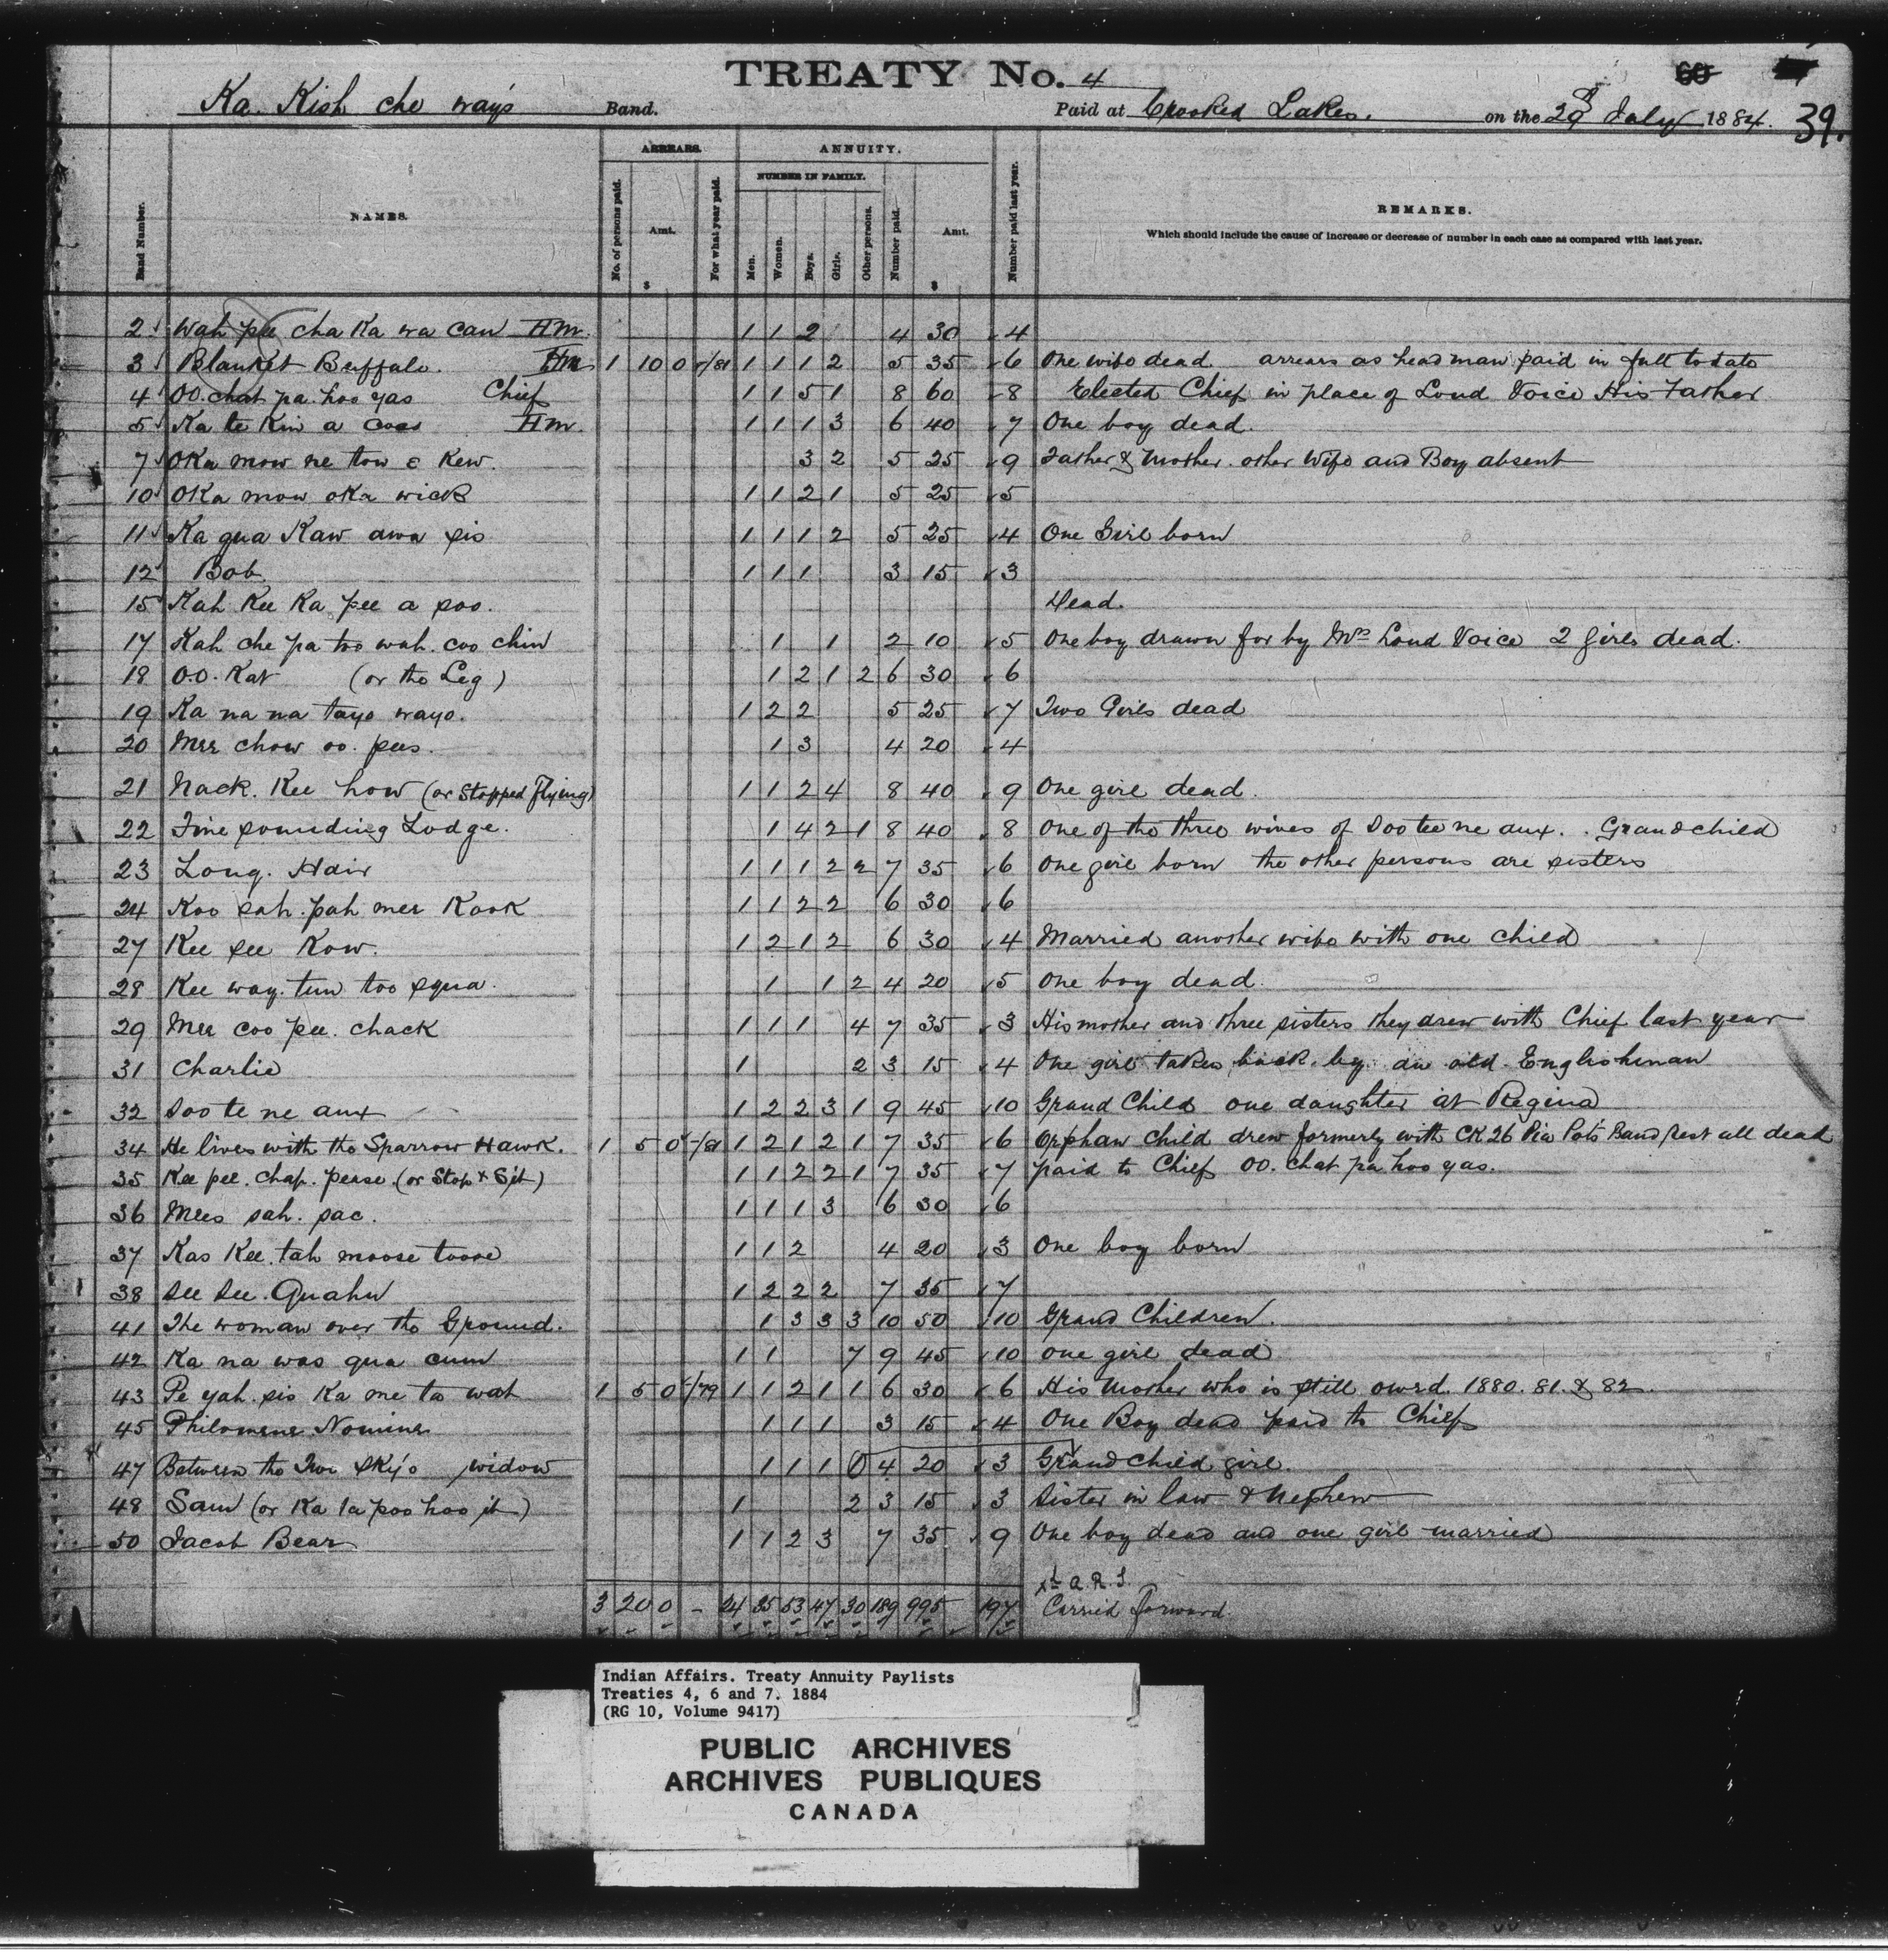 TREATY No. 4
60
39.
Ka. Kish che way's Band. Paid at Crooked Lakes. on the 29 July 1884.
ARREARS. ANNUITY.
NUMBER IN FAMILY.
Band Number. NAMES. No. of persons paid. Amt. $ For what year paid. Men. Women. Boys. Girls. Other persons. Number paid. Amt. $ Number paid last year. REMARKS.
Which should include the cause of increase or decrease of number in each case as compared with last year.
2 Wah pee cha Ka wa can Hm. 1 1 2 4 30 4
3 Blanket Buffalo. Hm 1 10 0 /81 1 1 1 2 5 35 6 One wife dead arrears as head man paid in full to date
4 OO. chat pa. hoo yas Chief 1 1 5 1 8 60 8 Elected Chief in place of Loud Voice His Father
5 Ka te Kin a Hm. 1 1 1 3 6 40 7 One boy dead.
7 OKa mow ne tow e Kew. 3 2 5 25 9 Father & Mother. other Wife and Boy absent
10 OKa mow oKa wick 1 1 2 1 5 25 5
11 Ka qua Kaw awa sis 1 1 1 2 5 25 4 One Girl born
12 Bob 1 1 1 3 15 3
15 Kah Kee Ka pee a soo. Dead.
17 Kah che pa too wah. coo chin 1 1 2 10 5 One boy drawn for by Mrs Loud Voice 2 girls dead.
18 OO. Kat (or the Leg) 1 2 1 2 6 30 6
19 Ka na na tayo wayo. 1 2 2 5 25 7 Two Girls dead
20 Mee chow oo. pees. 1 3 4 20 4
21 Nack. Kee how (or Stopped Flying) 1 1 2 4 8 40 9 One girl dead.
22 Fine sounding Lodge. 1 4 2 1 8 40 8 One of the three wives of Soo tee ne aux. . Grandchild
23 Long. Hair 1 1 1 2 2 7 35 6 One girl born the other persons are sisters
24 Koo sah. pah mee Kook 1 1 2 2 6 30 6
27 Kee see Kow. 1 2 1 2 6 30 4 Married another wife with one child
28 Kee way. tun too squa. 1 1 2 4 20 5 One boy dead.
29 Mee coo pee. chack 1 1 1 4 7 35 3 His mother and three sisters they drew with Chief last year
31 Charlie 1 2 3 15 4 One girl taken back by an old Englishman
32 Soo te ne aux 1 2 2 3 1 9 45 10 Grand Child one daughter at Regina
34 He lives with the Sparrow Hawk. 1 5 0 /81 1 2 1 2 1 7 35 6 Orphan child drew formerly with CK 26 Pia Pots Band rest all dead
35 Kee pee. chap. pease. (or Stop & Sit) 1 1 2 2 1 7 35 7 paid to Chief OO. chat pa hoo yas.
36 Mees sah. sac. 1 1 1 3 6 30 6
37 Kas Kee. tah moose toose 1 1 2 4 20 3 One boy born
38 See See. Quahn 1 2 2 2 7 35 7
41 The woman over the Ground. 1 3 3 3 10 50 10 Grand Children.
42 Ka na was qua cum 1 1 7 9 45 10 One girl dead
43 Pe yah. sis Ka me ta wat 1 5 0 /79 1 1 2 1 1 6 30 6 His Mother who is still owed. 1880. 81. & 82.
45 Philomene Nomine 1 1 1 3 15 4 One Boy dead paid to Chief
47 Between the Two Sky's widow 1 1 1 4 20 3 Grand Child girl.
48 Sam (or Ka la poo hoo it) 1 2 3 15 3 Sister in law & Nephew
50 Jacob Bear 1 1 2 3 7 35 9 One boy dead and one girl married
A.R.J.
3 20 0 - 24 35 53 47 30 189 995 197 Carried forward
Indian Affairs. Treaty Annuity Paylists
Treaties 4, 6 and 7. 1884
(RG 10, Volume 9417)
PUBLIC ARCHIVES
ARCHIVES PUBLIQUES
CANADA